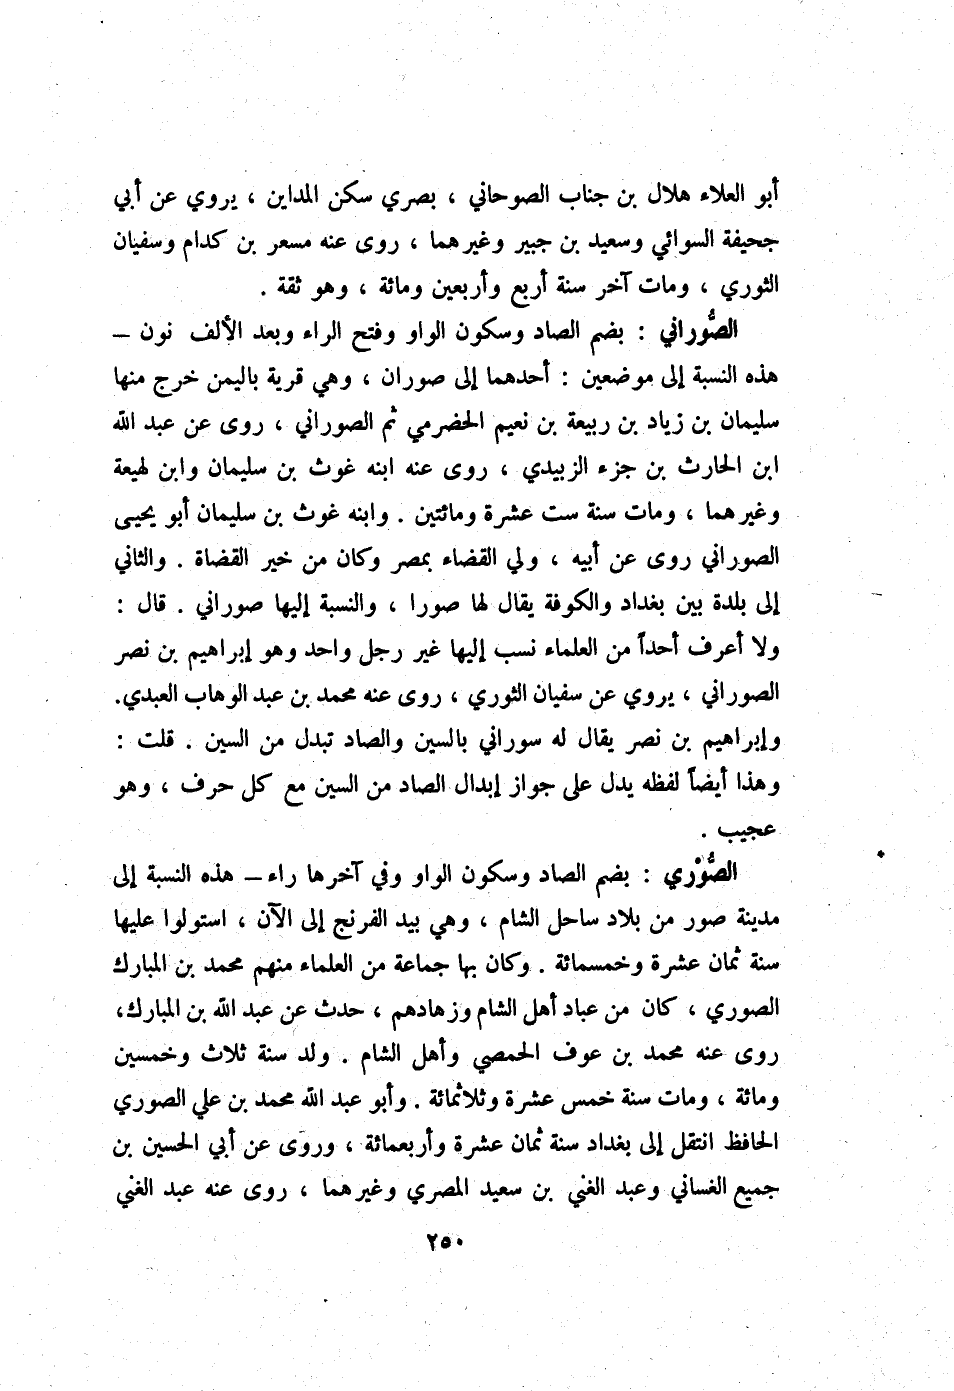 أبو العلاء هلال بن جناب الصوحاني ، بصري سكن المداين ، يروي عن أبي
جحيفة السوائي وسعيد بن جبير وغيرهما ، روى عنه مسعر بن كدام وسفيان
الثوري ، ومات آخر سنة أربع وأربعين ومائة ، وهو ثقة .
الصُّوراني : بضم الصاد وسكون الواو وفتح الراء وبعد الألف نون –
هذه النسبة إلى موضعين : أحدهما إلى صوران ، وهي قرية باليمن خرج منها
سليمان بن زياد بن ربيعة بن نعيم الحضرمي ثم الصوراني ، روى عن عبد الله
ابن الحارث بن جزء الزبيدي ، روى عنه ابنه غوث بن سليمان وابن لهيعة
وغيرهما ، ومات سنة ست عشرة ومائتين . وابنه غوث بن سليمان أبو يحيى
الصوراني روى عن أبيه ، ولي القضاء بمصر وكان من خير القضاة . والثاني
إلى بلدة بين بغداد والكوفة يقال لها صورا ، والنسبة إليها صوراني . قال :
ولا أعرف أحداً من العلماء نسب إليها غير رجل واحد وهو إبراهيم بن نصر
الصوراني ، يروي عن سفيان الثوري ، روى عنه محمد بن عبد الوهاب العبدي.
وإبراهيم بن نصر يقال له سوراني بالسين والصاد تبدل من السين . قلت :
وهذا أيضاً لفظه يدل على جواز إبدال الصاد من السين مع كل حرف ، وهو
عجيب .
الصُّوْري : بضم الصاد وسكون الواو وفي آخرها راء – هذه النسبة إلى
مدينة صور من بلاد ساحل الشام ، وهي بيد الفرنج إلى الآن ، استولوا عليها
سنة ثمان عشرة وخمسمائة . وكان بها جماعة من العلماء منهم محمد بن المبارك
الصوري ، كان من عباد أهل الشام وزهادهم ، حدث عن عبد الله بن المبارك،
روى عنه محمد بن عوف الحمصي وأهل الشام . ولد سنة ثلاث وخمسين
ومائة ، ومات سنة خمس عشرة وثلاثمائة . وأبو عبد الله محمد بن علي الصوري
الحافظ انتقل إلى بغداد سنة ثمان عشرة وأربعمائة ، وروى عن أبي الحسين بن
جميع الغساني وعبد الغني بن سعيد المصري وغيرهما ، روى عنه عبد الغني
٢٥٠